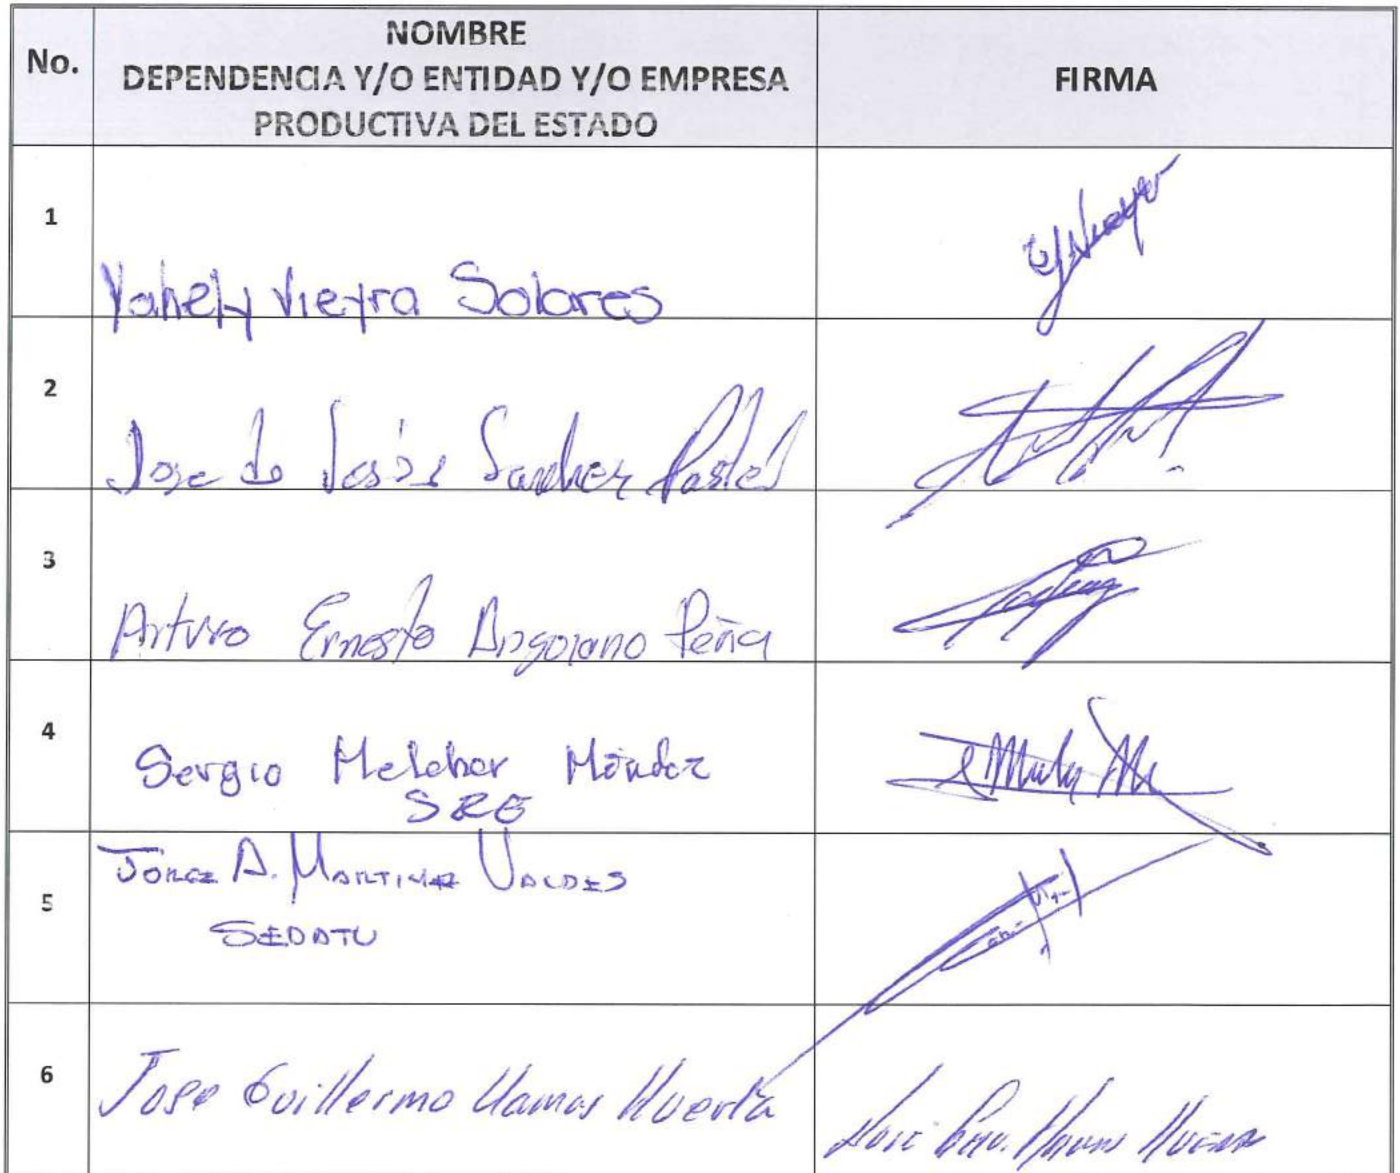 No.
NOMBRE
DEPENDENCIA Y/O ENTIDAD Y/O EMPRESA
PRODUCTIVA DEL ESTADO
FIRMA
1
Yahely Vieyra Solares
2
Jose de Jesús Sanchez Pastén
3
Arturo Ernesto Angoiano Peña
4
Sergio Melchor Méndez
SRE
5
Jorge A. Martinez Valdes
SEDATU
6
Jose Guillermo Llamas Huerta